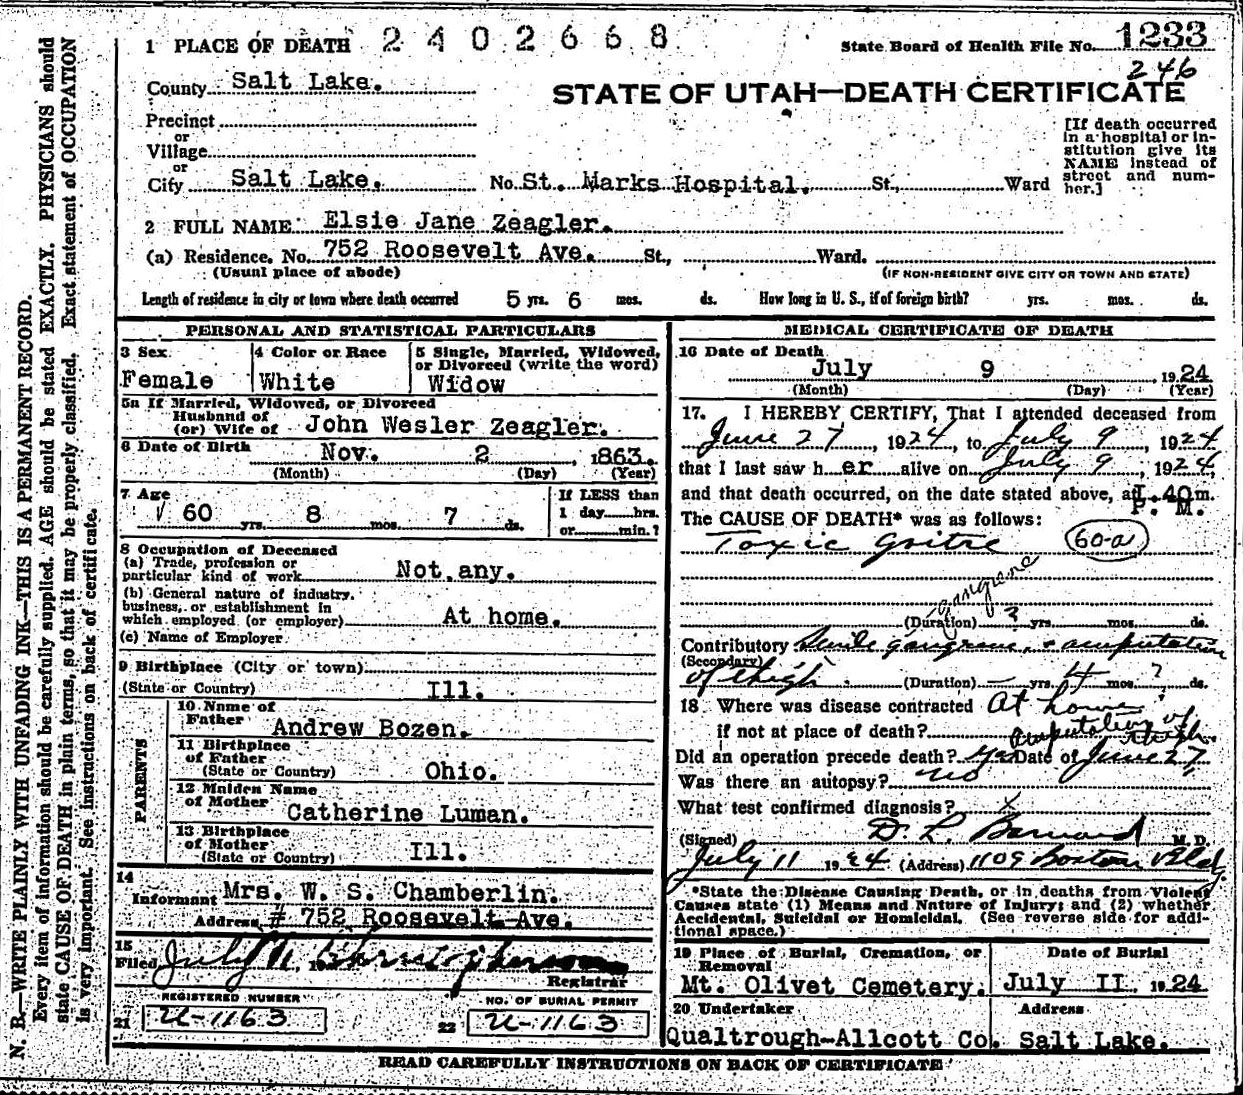 1 PLACE OF DEATH 2402668
State Board of Health File No. 1233
246
County Salt Lake.
STATE OF UTAH—DEATH CERTIFICATE
Precinct
or
Village
or
City Salt Lake. No. St. Marks Hospital. St., Ward
[If death occurred
in a hospital or in-
stitution give its
NAME instead of
street and num-
ber.]
2 FULL NAME Elsie Jane Zeagler.
(a) Residence. No. 752 Roosevelt Ave. St., Ward.
(Usual place of abode) (IF NON-RESIDENT GIVE CITY OR TOWN AND STATE)
Length of residence in city or town where death occurred 5 yrs. 6 mos. ds. How long in U. S., if of foreign birth? yrs. mos. ds.
PERSONAL AND STATISTICAL PARTICULARS
3 Sex
Female
4 Color or Race
White
5 Single, Married, Widowed,
or Divorced (write the word)
Widow
5a If Married, Widowed, or Divorced
Husband of
(or) Wife of John Wesler Zeagler.
6 Date of Birth Nov. 2, 1863.
(Month) (Day) (Year)
7 Age
60 yrs. 8 mos. 7 ds.
If LESS than
1 day hrs.
or min.?
8 Occupation of Deceased
(a) Trade, profession or
particular kind of work Not any.
(b) General nature of industry,
business, or establishment in
which employed (or employer) At home.
(c) Name of Employer
9 Birthplace (City or town)
(State or Country) Ill.
PARENTS
10 Name of
Father Andrew Bozen.
11 Birthplace
of Father
(State or Country) Ohio.
12 Maiden Name
of Mother Catherine Luman.
13 Birthplace
of Mother
(State or Country) Ill.
14
Informant Mrs. W. S. Chamberlin.
Address # 752 Roosevelt Ave.
15
Filed July 11
Registrar
REGISTERED NUMBER
21 U-1163
NO. OF BURIAL PERMIT
22 U-1163
MEDICAL CERTIFICATE OF DEATH
16 Date of Death
July 9, 1924
(Month) (Day) (Year)
17. I HEREBY CERTIFY, That I attended deceased from
June 27, 1924, to July 9, 1924
that I last saw her alive on July 9, 1924,
and that death occurred, on the date stated above, at I.40 m.
P. M.
The CAUSE OF DEATH* was as follows:
Toxic Goitre 60-a
gangrene
(Duration) ? yrs. mos. ds.
Contributory Senile gangrene, & amputation
(Secondary)
of thigh. (Duration) — yrs. 4 mos. ? ds.
18 Where was disease contracted At home
if not at place of death?
amputation of
thigh.
Did an operation precede death? Yes Date of June 27,
Was there an autopsy? no
What test confirmed diagnosis? X
(Signed) D. L. Barnard M. D.
July 11 1924 (Address) 1109 Boston Bldg.
*State the Disease Causing Death, or in deaths from Violent
Causes state (1) Means and Nature of Injury; and (2) whether
Accidental, Suicidal or Homicidal. (See reverse side for addi-
tional space.)
19 Place of Burial, Cremation, or
Removal
Mt. Olivet Cemetery.
Date of Burial
July II. 1924.
20 Undertaker
Qualtrough-Allcott Co.
Address
Salt Lake.
READ CAREFULLY INSTRUCTIONS ON BACK OF CERTIFICATE
N. B.—WRITE PLAINLY WITH UNFADING INK—THIS IS A PERMANENT RECORD.
Every item of information should be carefully supplied. AGE should be stated EXACTLY. PHYSICIANS should
state CAUSE OF DEATH in plain terms, so that it may be properly classified. Exact statement of OCCUPATION
is very important. See instructions on back of certificate.